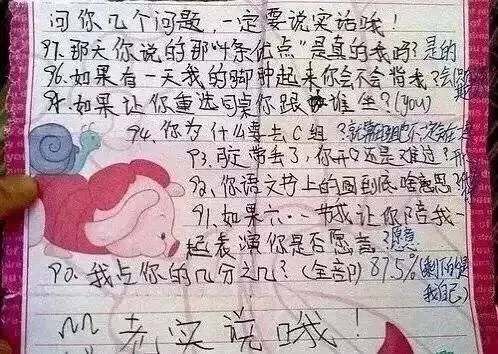 问你几个问题，一定要说实话哦！
97.那天你说的那"4条优点"是真的我吗？是的
96.如果有一天我的脚肿起来你会不会背我？会
95.如果让你重选同桌你跟谁坐？(you)
94.你为什么要去C组？
93.我定带丢了，你开心还是难过？
92.你语文书上的画到底啥意思？
91.如果六·一节我让你陪我一
起表演你是否愿意？愿意
90.我占你的几分之几？(全部) 87.5% (剩下的是
我自己)
老实说哦！